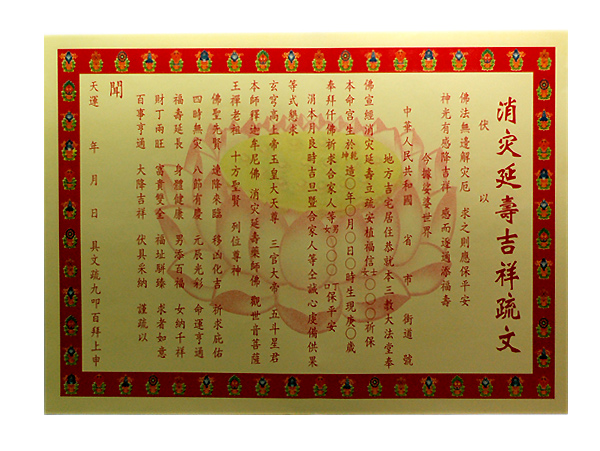 消灾延壽吉祥疏文
伏 以
佛法無邊解灾厄 求之則應保平安
神光有感降吉祥 感而遂通添福壽
今據娑婆世界
中華人民共和國 省 市 街道 號
地方吉宅居住恭就本三教大法堂奉
佛宣經消灾延壽立疏安植福信士女〇〇〇祈保
本命宮生於乾坤造〇年〇月〇日〇時生現庚〇歲
奉拜仟佛祈求合家人等男女〇〇〇〇口保平安
涓本月良時吉旦暨合家人等仝誠心虔備供果
等式懇求
玄宮高上帝玉皇大天尊 三官大帝 五斗星君
本師釋迦牟尼佛 消灾延壽藥師佛 觀世音菩薩
王禪老祖 十方聖賢 列位尊神
佛聖先賢 達降來臨 移凶化吉 祈求庇佑
四時無灾 八節有慶 元辰光彩 命運亨通
福壽延長 身體健康 男添百福 女納千祥
財丁兩旺 富貴雙全 福址駢臻 求者如意
百事亨通 大降吉祥 伏具采納 謹疏以
聞
天運 年 月 日 具文疏九叩百拜上申